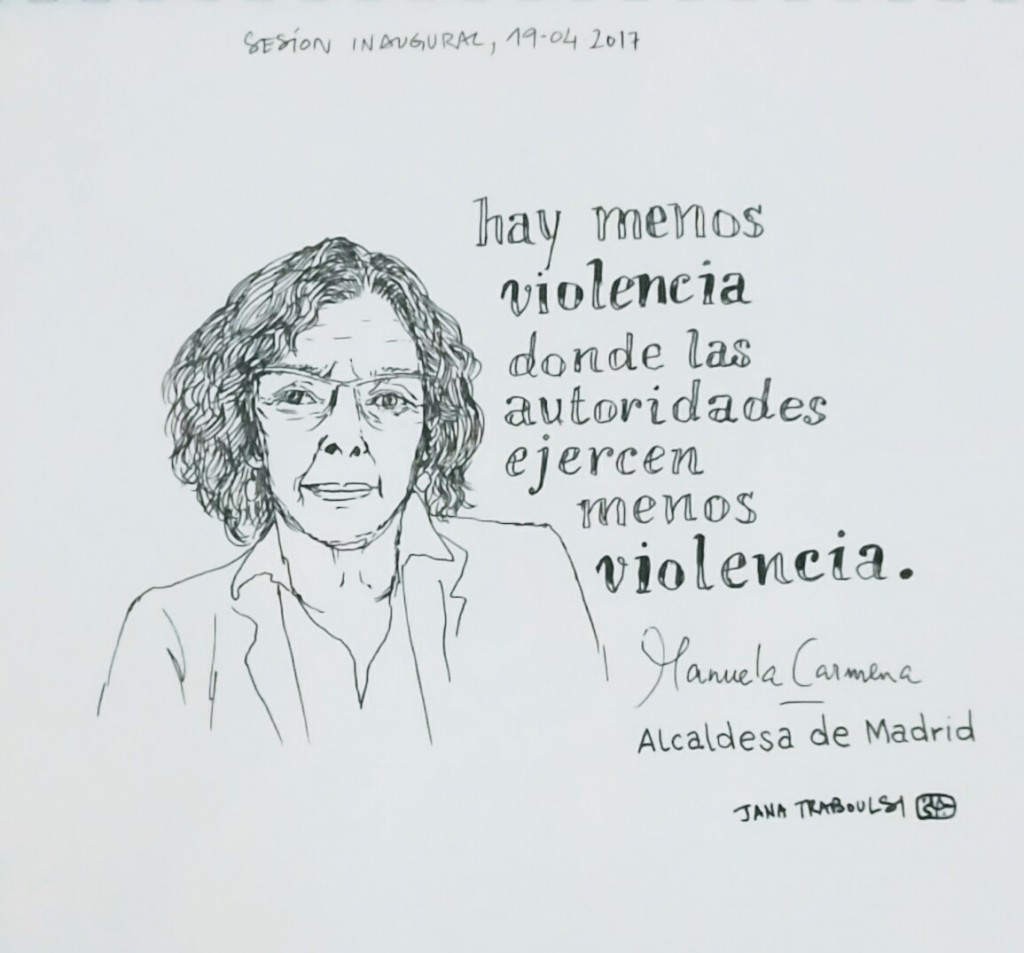 SESIÓN INAUGURAL, 19-04 2017
hay menos
violencia
donde las
autoridades
ejercen
menos
violencia.
Manuela Carmena
Alcaldesa de Madrid
JANA TRABOULSI